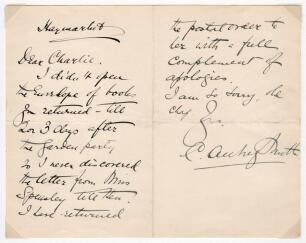 Haymarket
Dear Charlie.
I didn't open
the Envelope of books
you returned - till
2 or 3 days after
the Garden party
So I never discovered
the letter from Miss
till then.
I have returned
the postal order to
her with a full
complement of
apologies.
I am so sorry, old
chap
C. Aubrey Smith